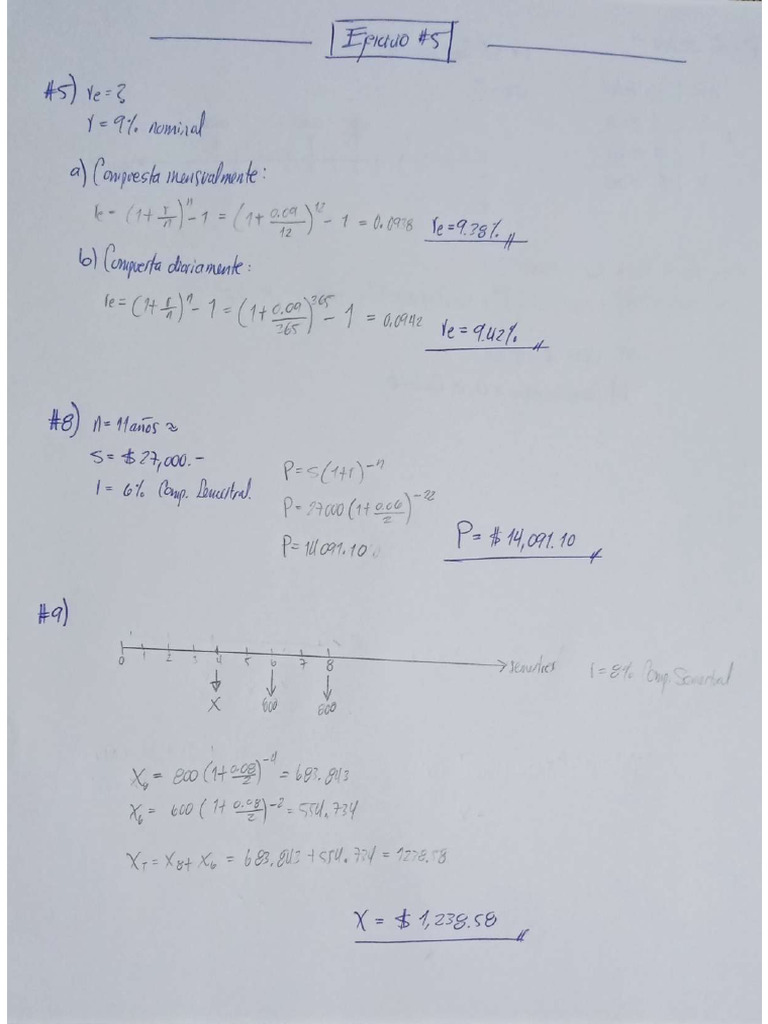 Ejercicio #5
#5) re = ?
r = 9% nominal
a) Compuesta mensualmente:
re = (1+r/n)^n - 1 = (1+0.09/12)^12 - 1 = 0.0938 re = 9.38%
b) Compuesta diariamente:
re = (1+r/n)^n - 1 = (1+0.09/365)^365 - 1 = 0.0942 re = 9.42%
#8) n = 11 años
S = $27,000.-
i = 6% Comp. Semestral.
P = S(1+i)^-n
P = 27000(1+0.06/2)^-22
P = 14091.10
P = $14,091.10
#9)
0 1 2 3 4 5 6 7 8 semestres i = 8% Comp. Semestral
X 600 800
X8 = 800(1+0.08/2)^-4 = 683.843
X6 = 600(1+0.08/2)^-2 = 554.734
XT = X8 + X6 = 683.843 + 554.734 = 1238.58
X = $1,238.58